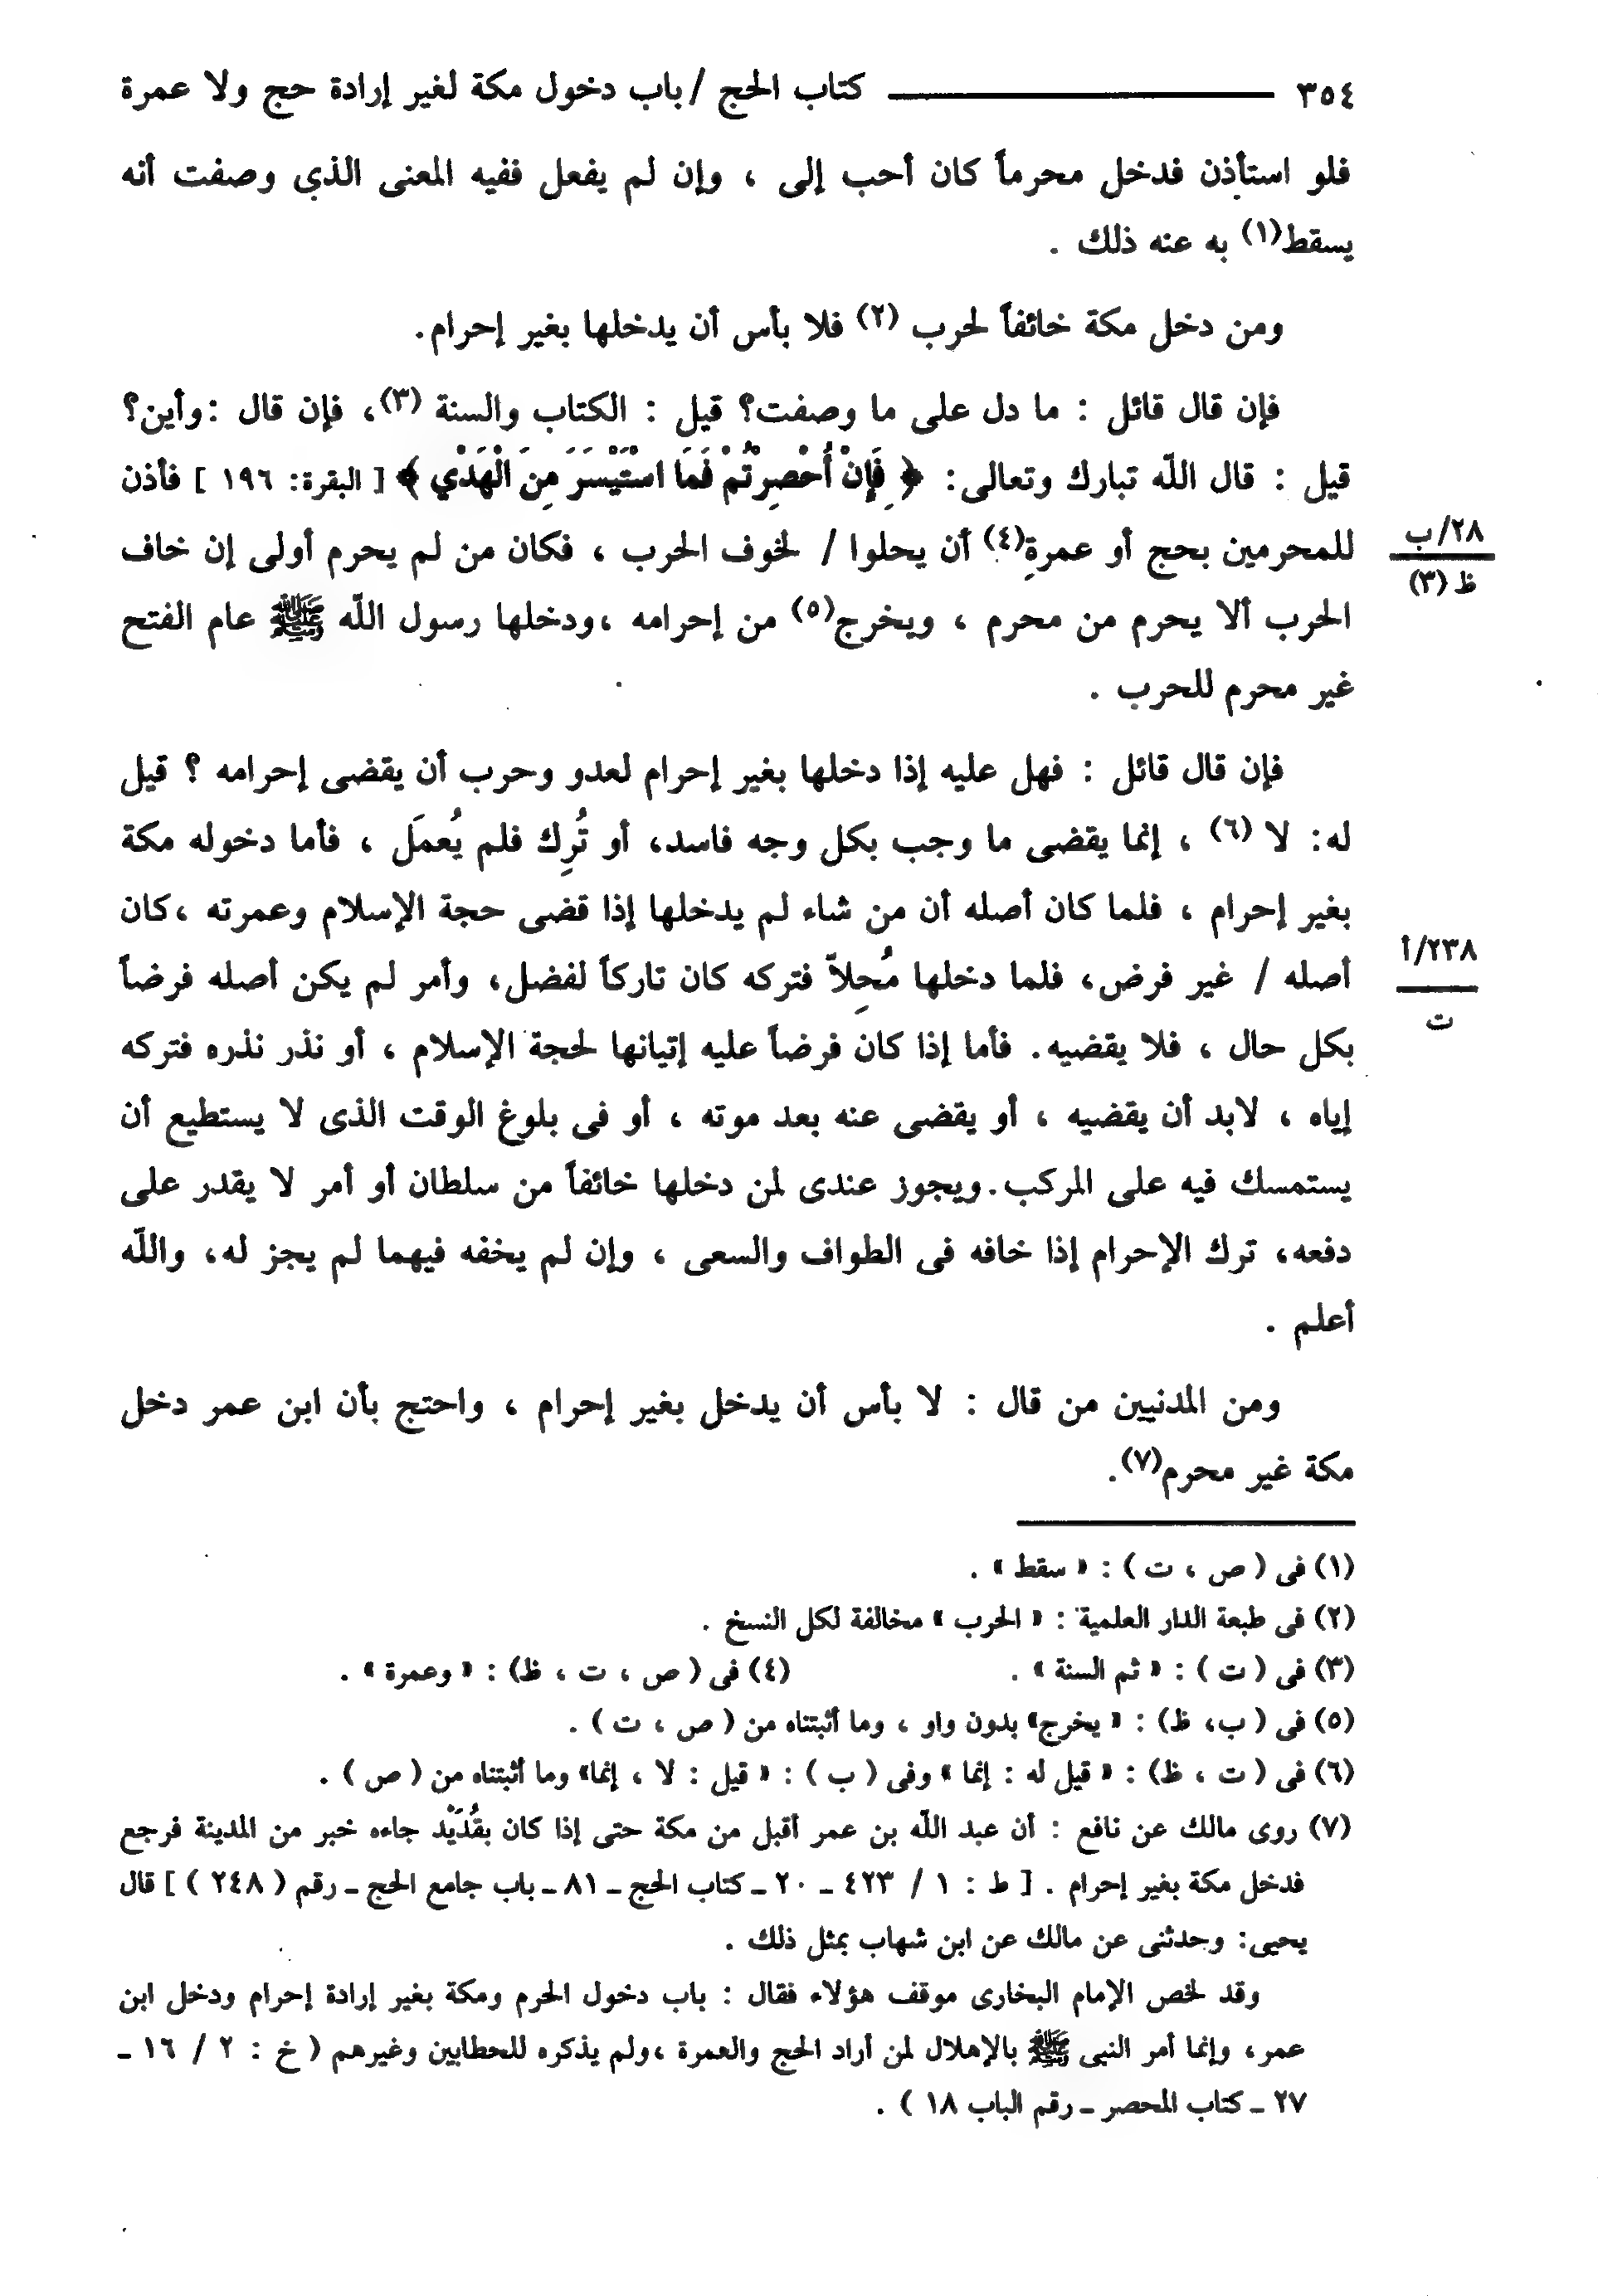 ٣٥٤ كتاب الحج / باب دخول مكة لغير إرادة حج ولا عمرة
فلو استأذن فدخل محرماً كان أحب إلى ، وإن لم يفعل ففيه المعنى الذي وصفت أنه
يسقط(١) به عنه ذلك .
ومن دخل مكة خائفاً لحرب (٢) فلا بأس أن يدخلها بغير إحرام.
فإن قال قائل : ما دل على ما وصفت؟ قيل : الكتاب والسنة (٣)، فإن قال :وأين؟
قيل : قال اللّه تبارك وتعالى: ﴿ فَإِنْ أُحْصِرْتُمْ فَمَا اسْتَيْسَرَ مِنَ الْهَدْيِ ﴾ [ البقرة: ١٩٦ ] فأذن
للمحرمين بحج أو عمرةِ(٤) أن يحلوا / لخوف الحرب ، فكان من لم يحرم أولى إن خاف
٢٨/ب
ظ (٣)
الحرب ألا يحرم من محرم ، ويخرج(٥) من إحرامه ،ودخلها رسول اللّه ﷺ عام الفتح
غير محرم للحرب .
فإن قال قائل : فهل عليه إذا دخلها بغير إحرام لعدو وحرب أن يقضى إحرامه ؟ قيل
له: لا (٦) ، إنما يقضى ما وجب بكل وجه فاسد، أو تُرِك فلم يُعمَل ، فأما دخوله مكة
بغير إحرام ، فلما كان أصله أن من شاء لم يدخلها إذا قضى حجة الإسلام وعمرته ،كان
أصله / غير فرض، فلما دخلها مُحِلاّ فتركه كان تاركاً لفضل، وأمر لم يكن أصله فرضاً
٢٣٨/أ
ت
بكل حال ، فلا يقضيه. فأما إذا كان فرضاً عليه إتيانها لحجة الإسلام ، أو نذر نذره فتركه
إياه ، لابد أن يقضيه ، أو يقضى عنه بعد موته ، أو فى بلوغ الوقت الذى لا يستطيع أن
يستمسك فيه على المركب.ويجوز عندى لمن دخلها خائفاً من سلطان أو أمر لا يقدر على
دفعه، ترك الإحرام إذا خافه فى الطواف والسعى ، وإن لم يخفه فيهما لم يجز له، واللّه
أعلم .
ومن المدنيين من قال : لا بأس أن يدخل بغير إحرام ، واحتج بأن ابن عمر دخل
مكة غير محرم(٧).
(١) فى ( ص ، ت ) : « سقط » .
(٢) فى طبعة الدار العلمية : « الحرب » مخالفة لكل النسخ .
(٣) فى ( ت ) : « ثم السنة » . (٤) فى ( ص ، ت ، ظ) : « وعمرة » .
(٥) فى ( ب، ظ) : « يخرج» بدون واو ، وما أثبتناه من ( ص ، ت ) .
(٦) فى ( ت ، ظ) : « قيل له : إنما » وفى ( ب ) : « قيل : لا ، إنما» وما أثبتناه من ( ص ) .
(٧) روى مالك عن نافع : أن عبد اللّه بن عمر أقبل من مكة حتى إذا كان بقُدَيْد جاءه خبر من المدينة فرجع
فدخل مكة بغير إحرام . [ ط : ١ / ٤٢٣ ـ ٢٠ ـ كتاب الحج ـ ٨١ ـ باب جامع الحج ـ رقم ( ٢٤٨ ) ] قال
يحيى: وحدثنى عن مالك عن ابن شهاب بمثل ذلك .
وقد لخص الإمام البخارى موقف هؤلاء فقال : باب دخول الحرم ومكة بغير إرادة إحرام ودخل ابن
عمر، وإنما أمر النبى ﷺ بالإهلال لمن أراد الحج والعمرة ،ولم يذكره للحطابين وغيرهم ( خ : ٢ / ١٦ ـ
٢٧ ـ كتاب المحصر ـ رقم الباب ١٨ ) .